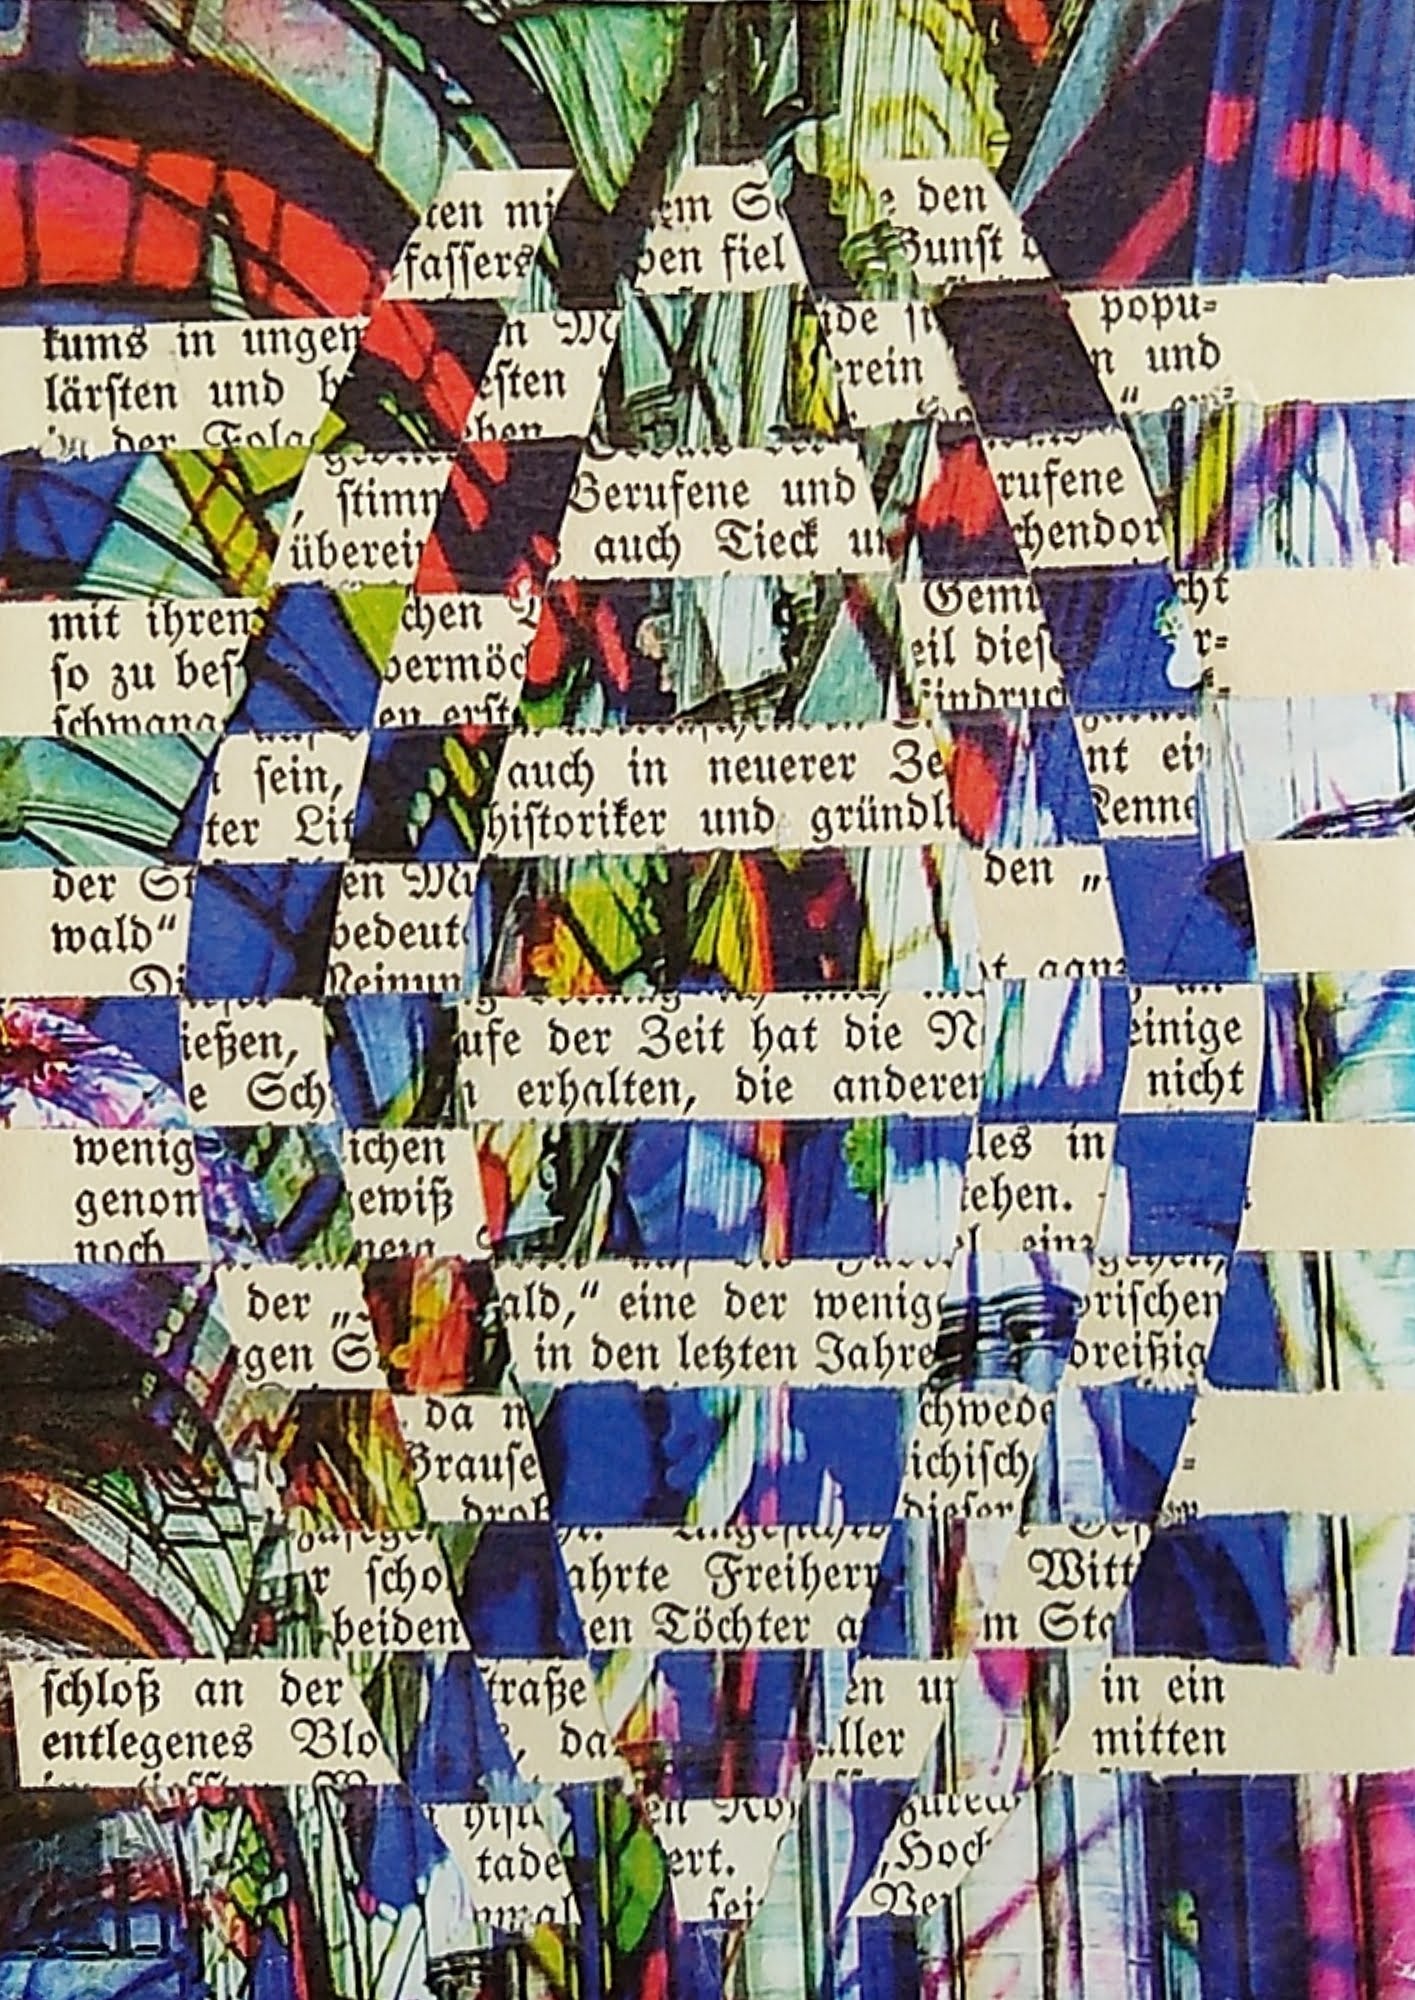 ten mi em S e den
fassers ben fiel Gunst
popu=
kums in ungem n M de
lärsten und b esten rein n und
in der Folg ehen
, stimm Berufene und rufene
überein auch Tieck un chendor
mit ihrem chen Gemü cht
so zu bes vermöc eil diese r=
schwang en erst indruck
sein, auch in neuerer Ze nt ein
ter Lit historiker und gründli Kenne
der St en Mu den „
wald“ bedeut
Di Meinun t ganz
ießen, ufe der Zeit hat die N einige
e Sch n erhalten, die anderen nicht
wenig ichen les in
genom gewiß tehen.
noch nein einz
der „ ald,“ eine der wenig orischen
gen S in den letzten Jahre dreißig
da n chwede
Grause ichisch =
droh dieser
r scho ahrte Freiherr Witt
beiden en Töchter a m Sta
schloß an der straße en un in ein
entlegenes Blo , da ller mitten
hist en Ro
tade ert. „Hoch
nmal sei Ver